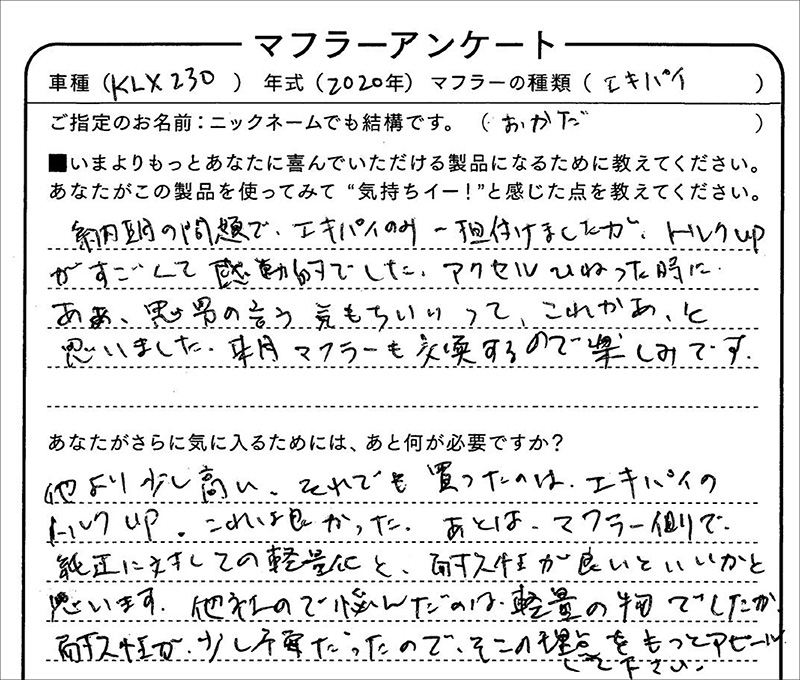 マフラーアンケート
車種（KLX230） 年式（2020年） マフラーの種類（エキパイ）
ご指定のお名前：ニックネームでも結構です。（おかだ）
■いまよりもっとあなたに喜んでいただける製品になるために教えてください。
あなたがこの製品を使ってみて“気持ちイー！”と感じた点を教えてください。
納期の問題で、エキパイのみ先付けましたが、トルクup
がすごくて感動的でした。アクセルひねった時に
ああ、男の言う気もちいいって、これかあ、と
思いました。来月マフラーも交換するので楽しみです。
あなたがさらに気に入るためには、あと何が必要ですか？
他より少し高い。それでも買ったのは、エキパイの
トルクup。これは良かった。あとは、マフラー側で、
純正に対しての軽量化と、耐久性が良いといいかと
思います。他社ので悩んだのは、軽量の物でしたが、
耐久性が、少し不安だったので、そこの をもっとアピール
して下さい。